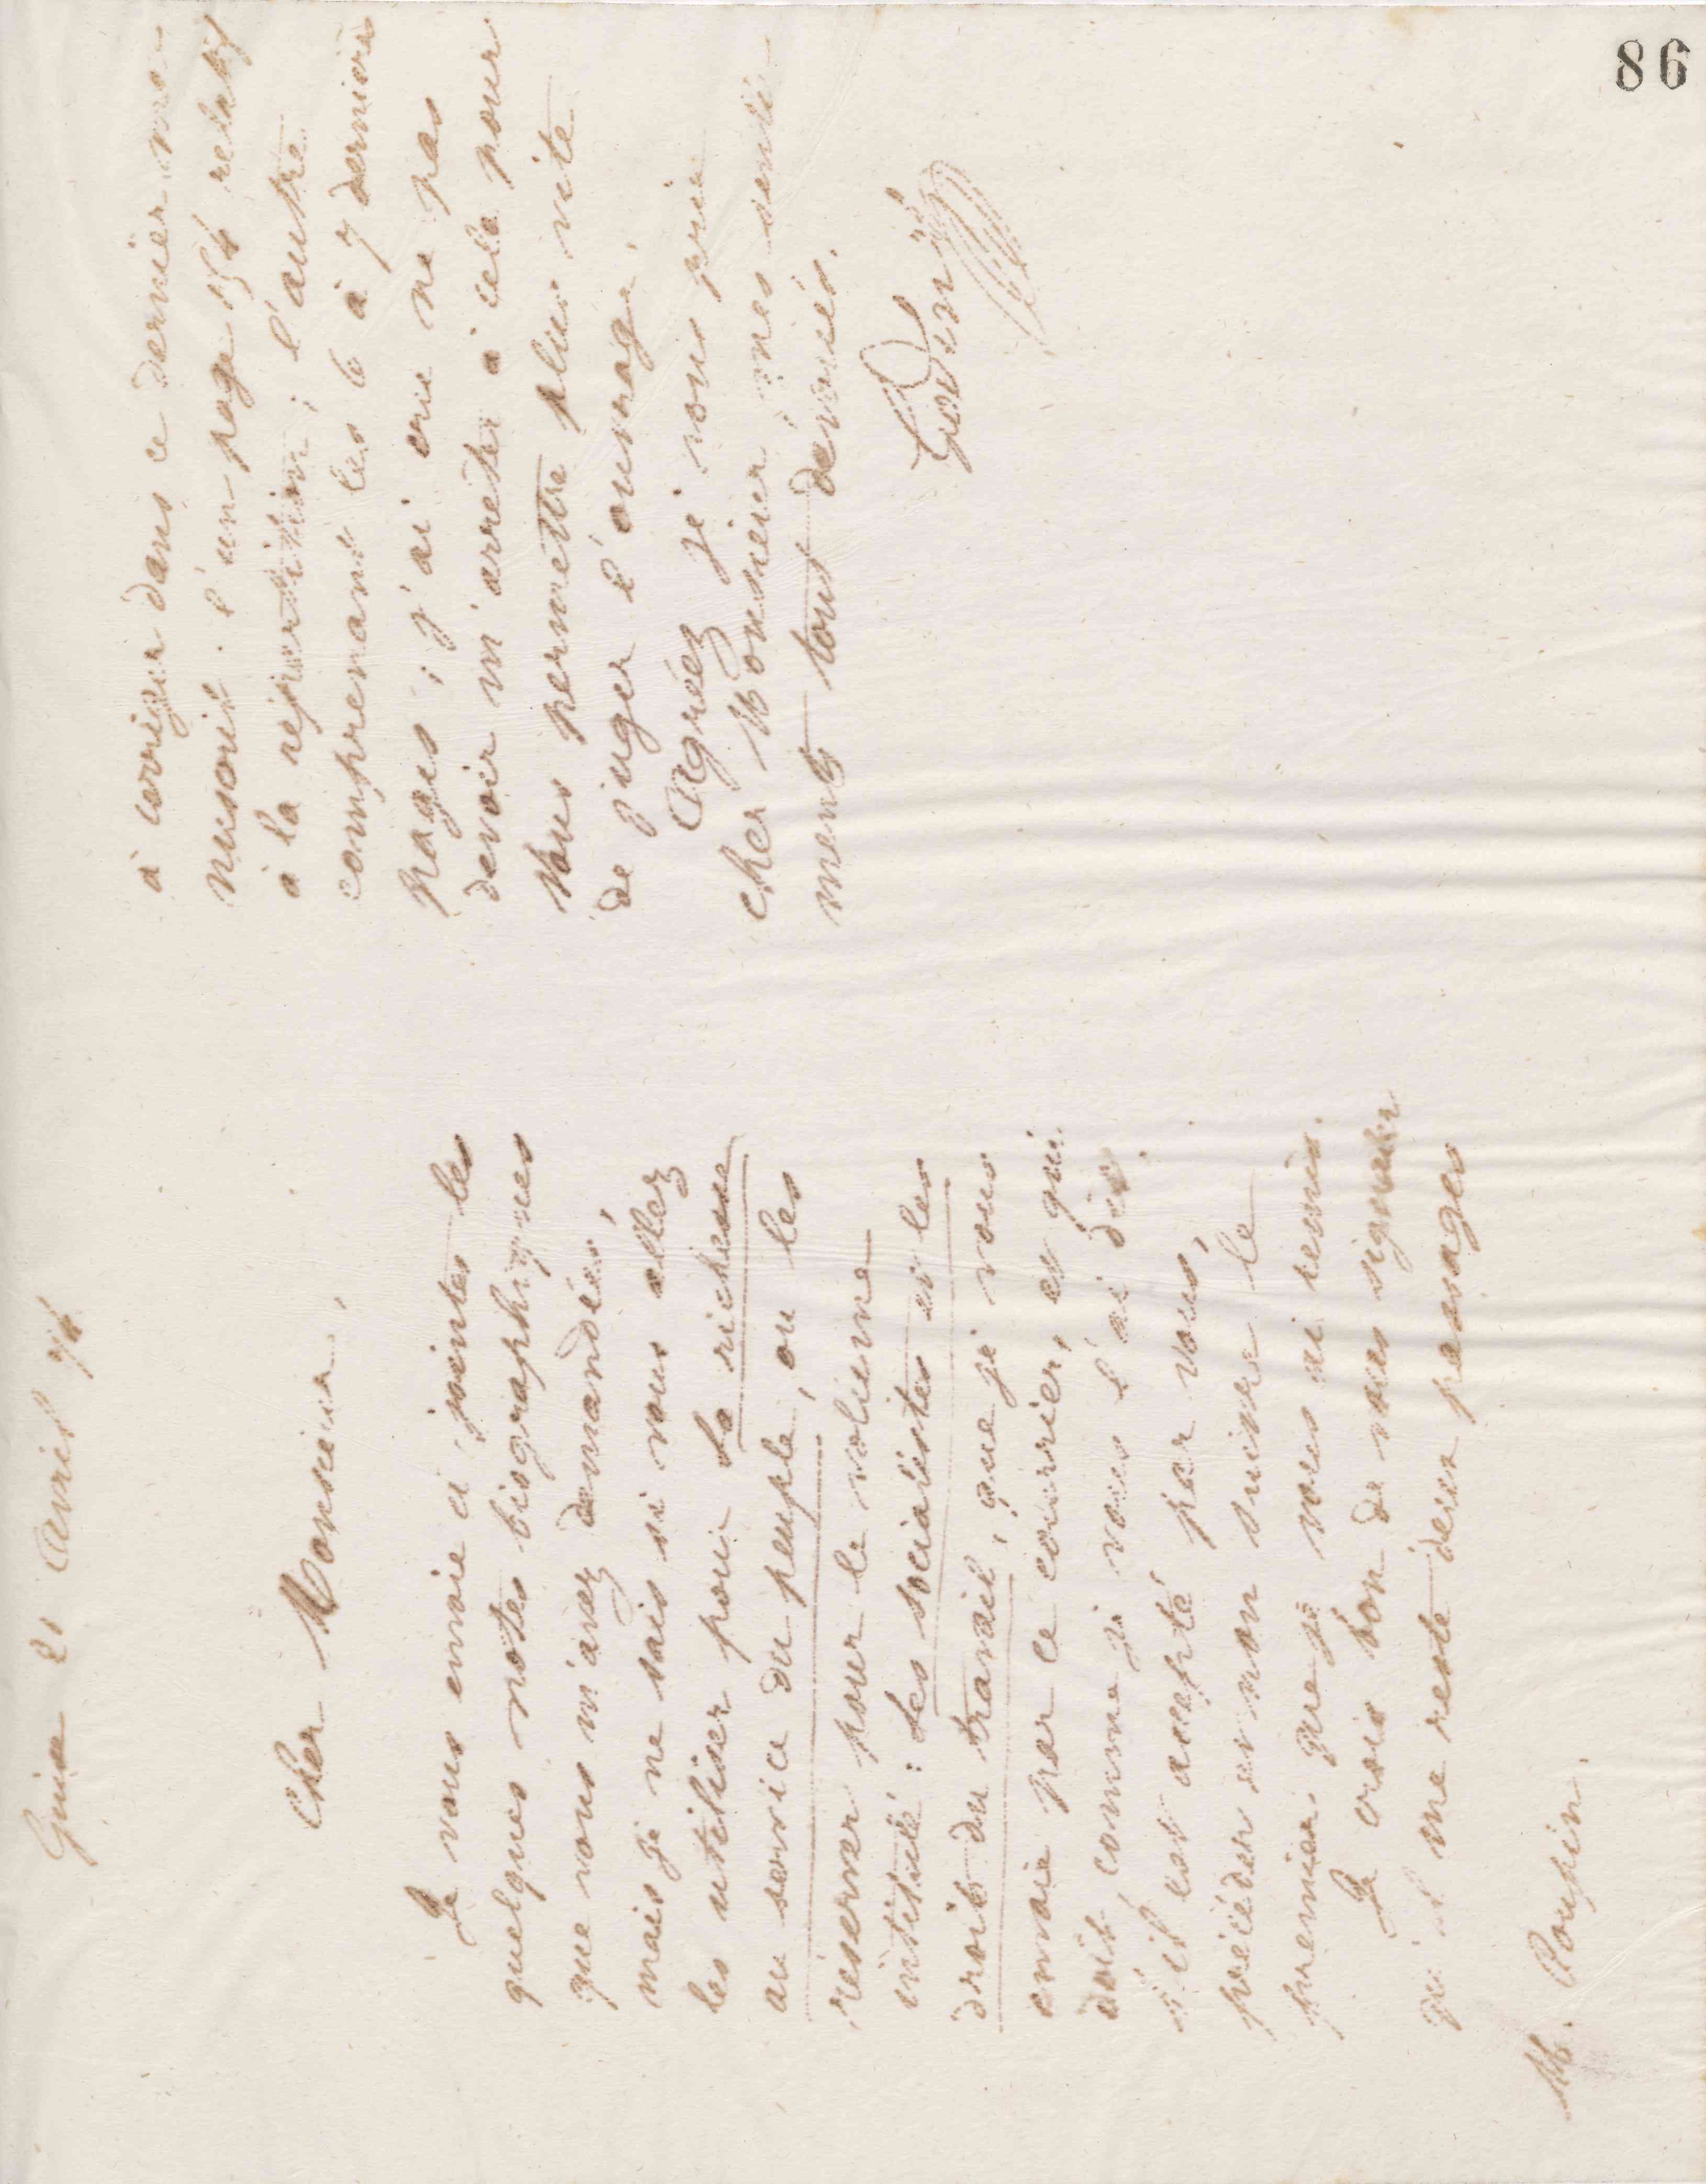 86
Guise 21 Avril 74
Cher Monsieur,
Je vous envoie ci jointes les
quelques notes biographiques
que vous m'avez demandées,
mais je ne sais si vous allez
les utiliser pour La richesse
au service du peuple, ou les
réserver pour le volume
intitulé : Les socialistes et les
droits du travail, que je vous
envoie par ce courrier, et qui
doit, comme je vous l'ai dit,
s'il est accepté par vous,
précéder et non suivre le
premier que je vous ai remis.
Je crois bon de vous signaler
qu'il me reste deux passages
M. Poupin.
à corriger dans ce dernier ma-
nuscrit. l'un page 154 relatif
à la répartition ; l'autre
comprenant les 6 à 7 dernières
pages ; j'ai cru ne pas
devoir m'arrêter à cela pour
vous permettre plus vite
de juger l'ouvrage.
Agréez je vous prie
cher Monsieur, mes senti-
ments tout dévoués.
Godin